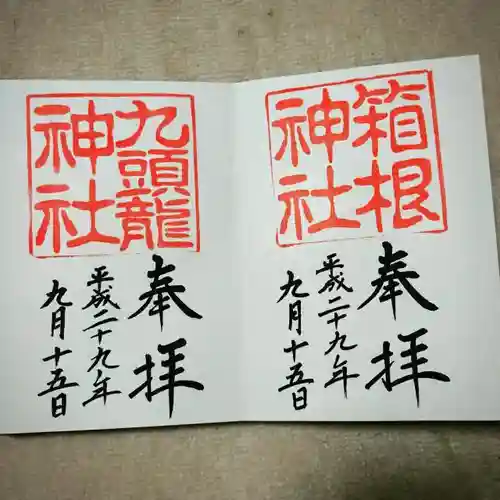 箱根
神社
奉拝
平成二十九年
九月十五日
九頭龍
神社
奉拝
平成二十九年
九月十五日